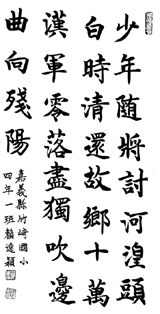 少年隨將討河湟頭
白時清還故鄉十萬
漢軍零落盡獨吹邊
曲向殘陽
嘉義縣竹崎國小
四年一班賴逸穎